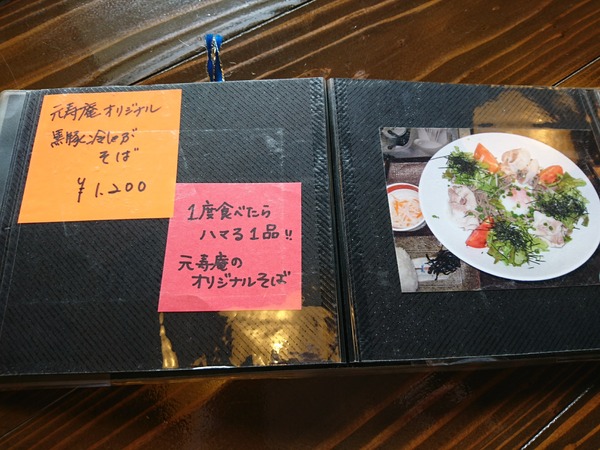 元寿庵オリジナル
黒豚冷しゃぶ
そば
¥1.200
1度食べたら
ハマる1品!!
元寿庵の
オリジナルそば